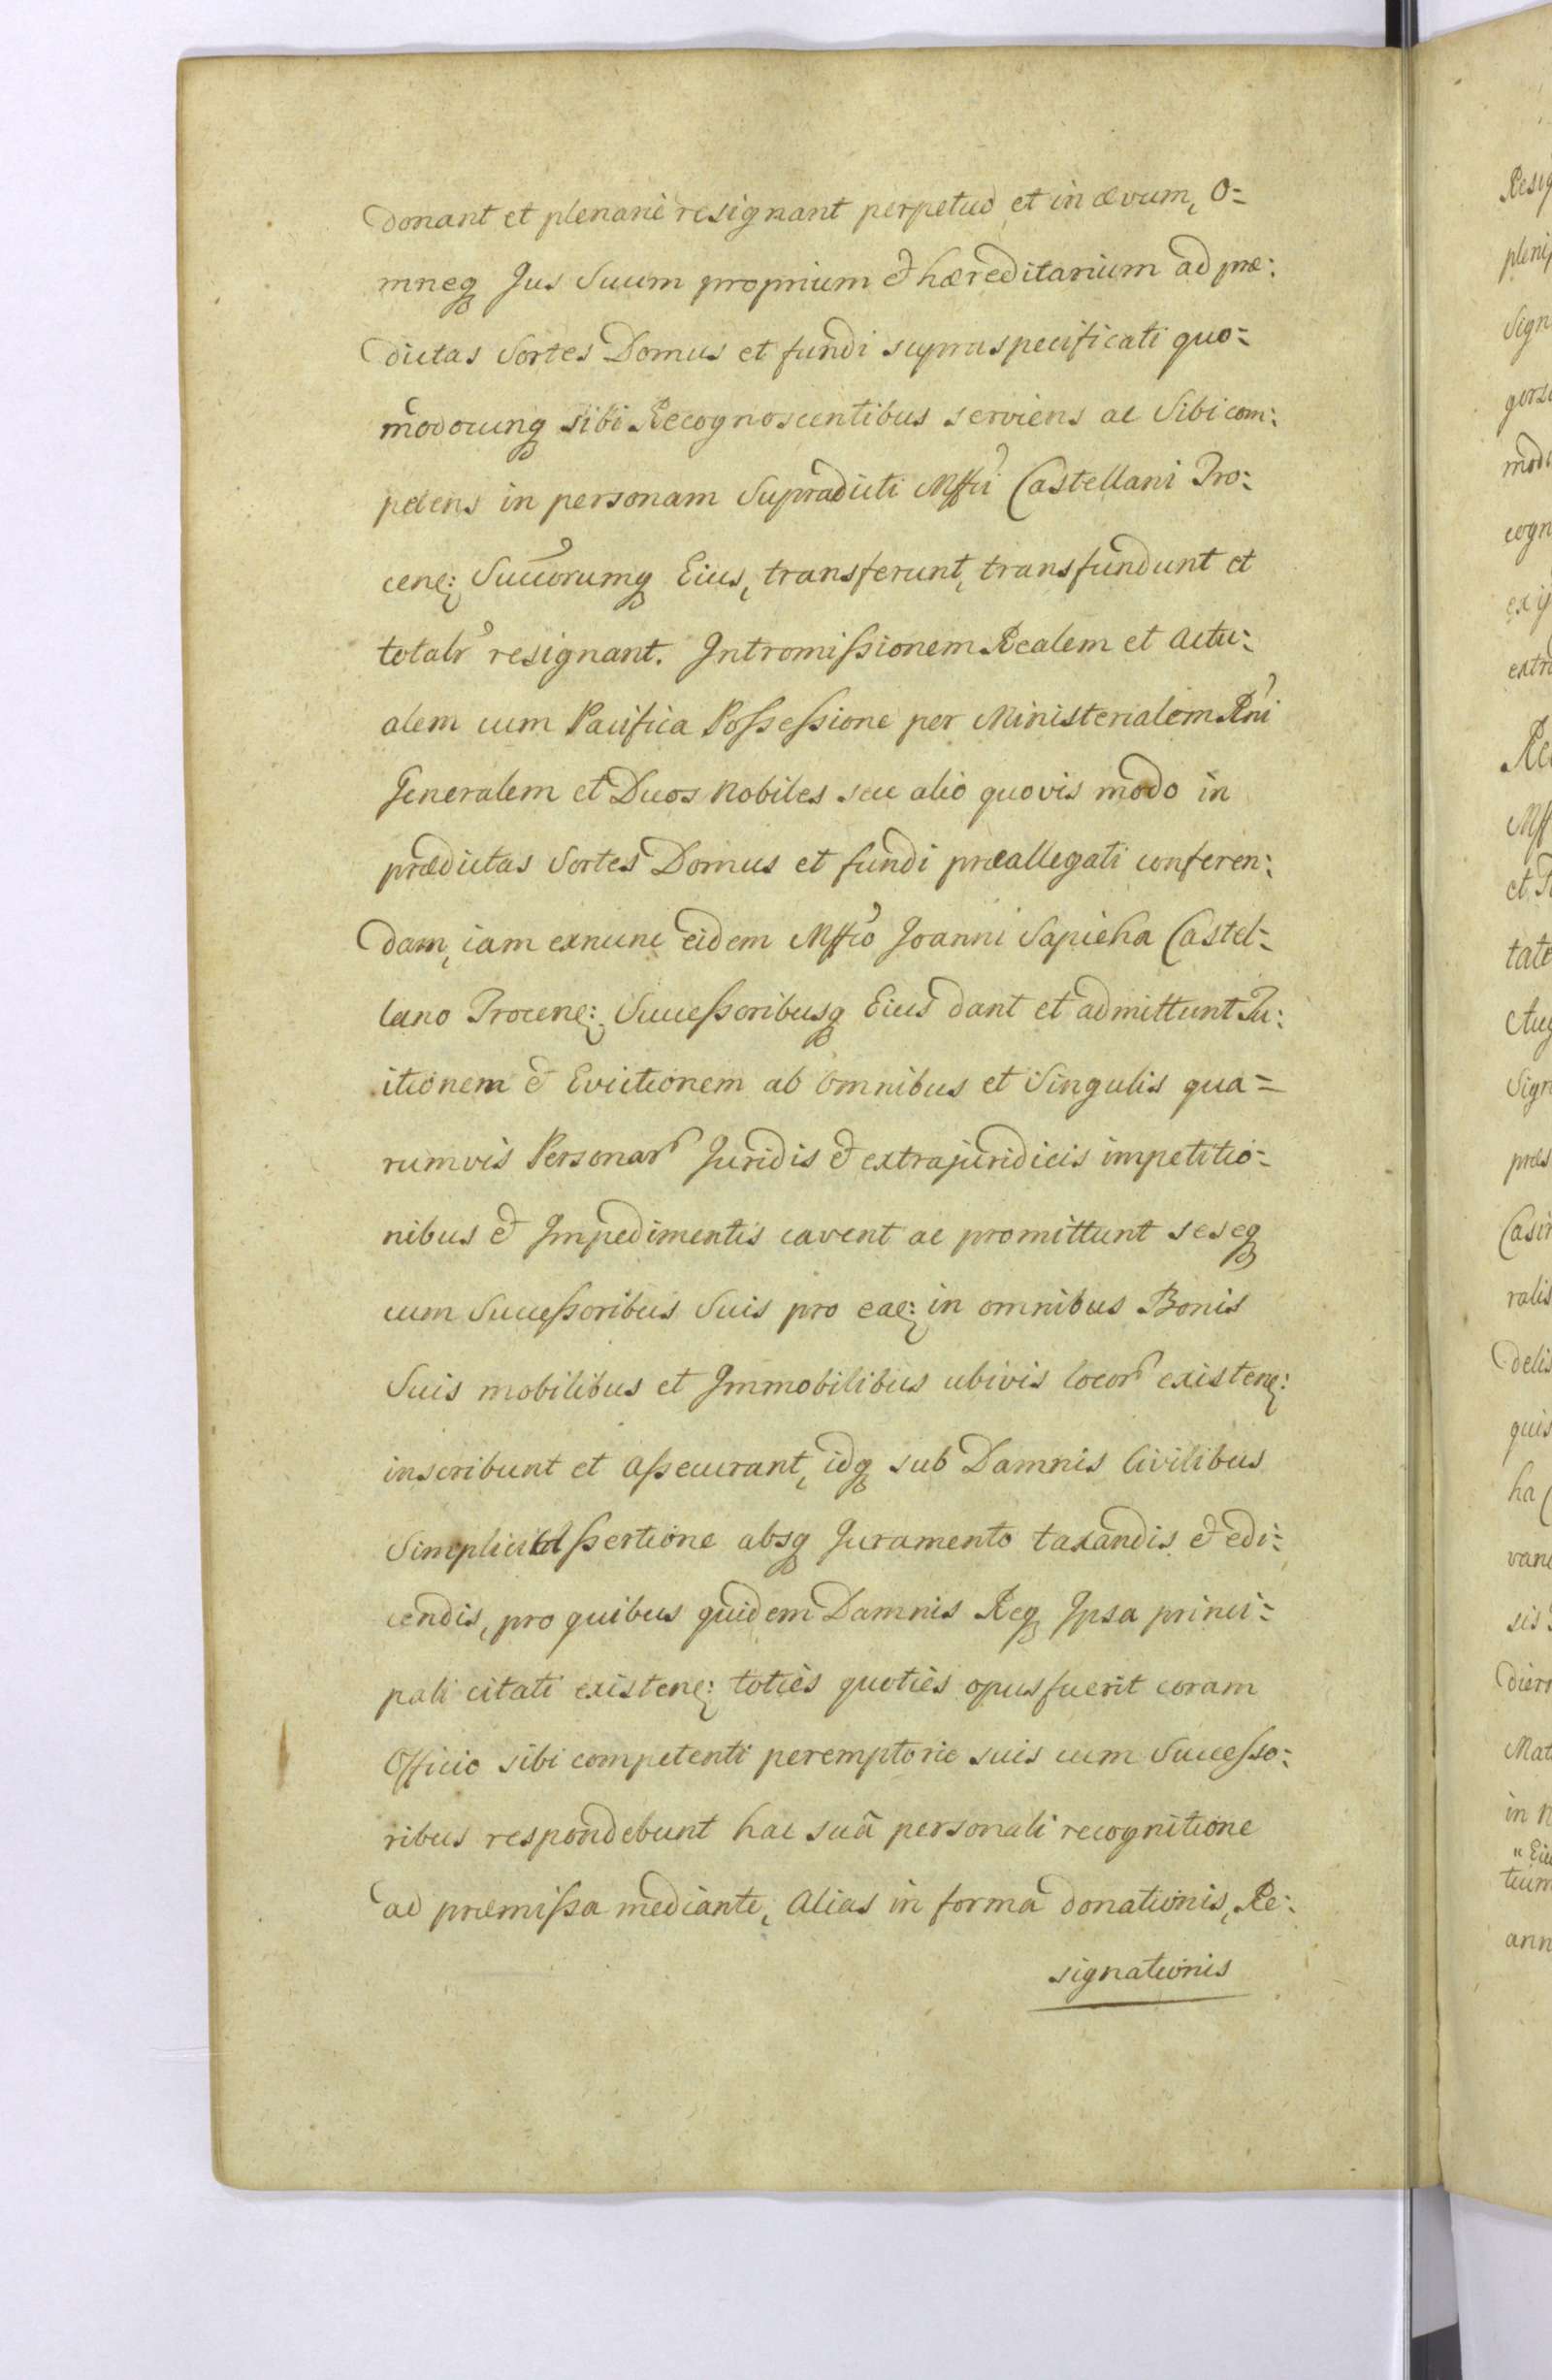 donant et plenariè resignant perpetuò et in ævum, o=
mneq Jus Suum proprium et hæreditarium ad præ:
dictas Sortes Domus et fundi supraspecificati quo=
modocunq sibi Recognoscentibus serviens ac Sibi com:
petens in personam Supradicti Mffci Castellani Tro:
cen: Succorumq Eius, transferunt, transfundunt et
totalr resignant. Intromissionem Realem et actu:
alem cum Pacifica Possessione per Ministerialem Rni
Generalem et Duos Nobiles seu alio quovis modo in
prædictas Sortes Domus et fundi præallegati conferen:
dam, iam exnunc eidem Mffco Joanni Sapieha Castel=
lano Trocen: Successoribusq Eius dant et admittunt Tu:
itionem et Evictionem ab omnibus et Singulis qua=
rumvis Personar Juridis et extrajuridicis impetitio=
nibus et Impedimentis cavent ac promittunt seseq
cum Successoribus Suis pro ea: in omnibus Bonis
Suis mobilibus et Immobilibus ubivis locor existen:
inscribunt et assecurant, idq sub Damnis Civilibus
Simplici Assertione absq Juramento taxandis et edi=
cendis, pro quibus quidem Damnis Req Ipsa princi=
pali citati existen: totiès quotiès opus fuerit coram
Officio sibi competenti peremptorie suis cum Successo:
ribus respondebunt hac suâ personali recognitione
ad præmissa mediante, Alias in forma donationis, Re:
signationis